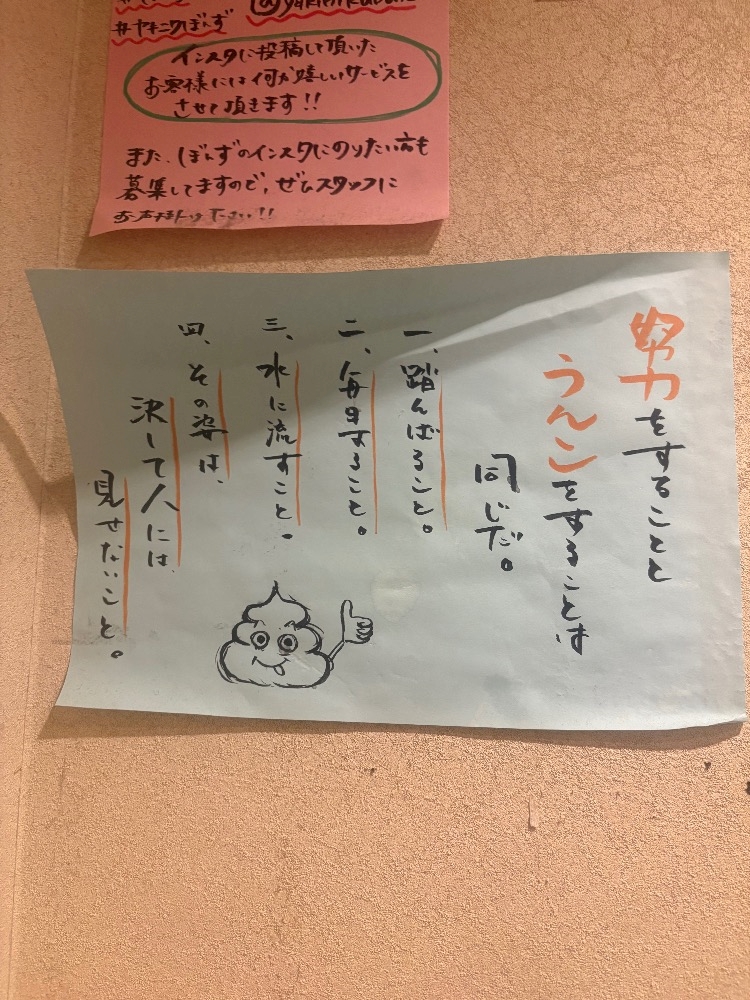 #ヤキニクぼんず
インスタに投稿して頂いた
お客様には何か嬉しいサービスを
させて頂きます!!
また、ぼんずのインスタにのりたい方も
募集してますので、ぜひスタッフに
お声掛け下さい!!
努力をすることと
うんこをすることは
同じだ。
一、踏んばること。
二、毎日すること。
三、水に流すこと。
四、その姿は、
決して人には
見せないこと。